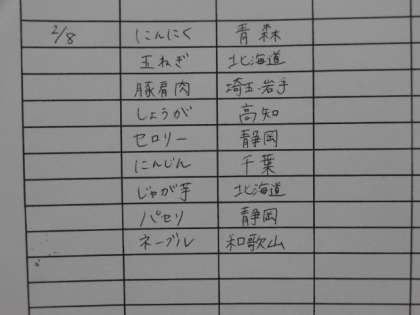 2/8 にんにく 青森
玉ねぎ 北海道
豚肩肉 埼玉.岩手
しょうが 高知
セロリー 静岡
にんじん 千葉
じゃが芋 北海道
パセリ 静岡
ネーブル 和歌山